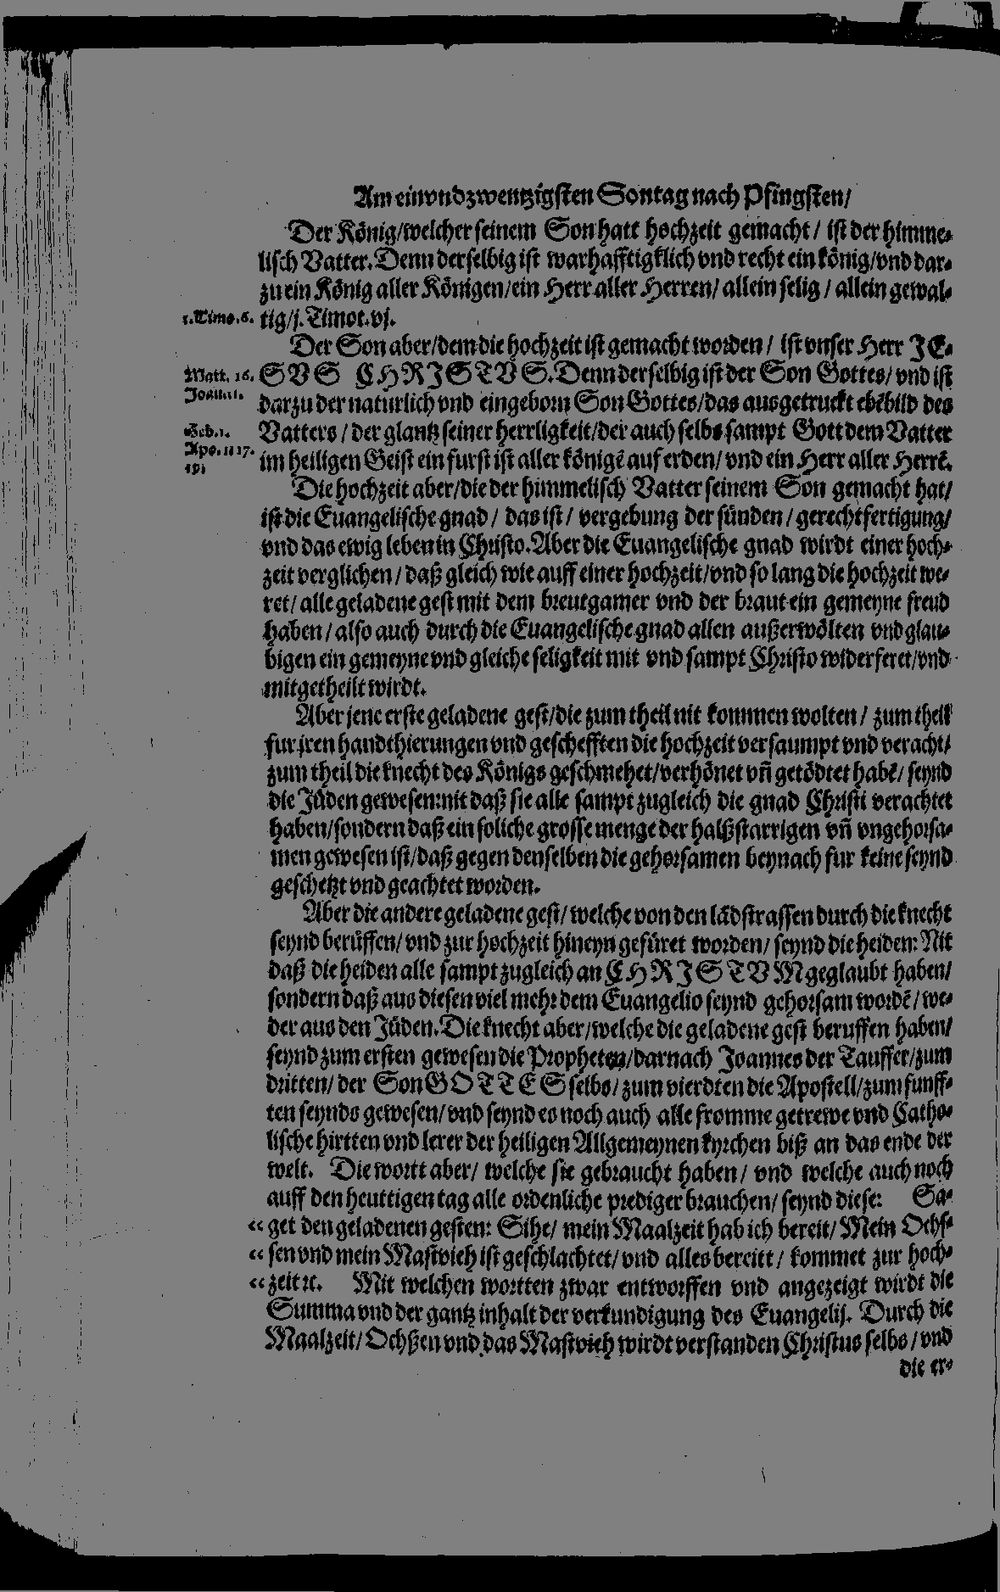 Am einvndzwentzigsten Sontag nach Pfingsten/
Der König/welcher seinem Son hatt hochzeit gemacht / ist der himme-
lisch Vatter. Denn derselbig ist warhafftigklich vnd recht ein könig/vnd dar-
zu ein König aller Königen/ein Herr aller Herren/ allein selig / allein gewal-
1.Timo.6.
tig/j. Timot.vj.
Der Son aber/dem die hochzeit ist gemacht worden / ist vnser Herr JE-
Matt. 16.
SVS CHRISTVS. Denn derselbig ist der Son Gottes/ vnd ist
Joan.i.
darzu der naturlich vnd eingeborn Son Gottes/das ausgetruckt ebēbild des
Heb.1.
Vatters / der glantz seiner herrligkeit/der auch selbs sampt Gott dem Vatter
Apo. 1 17.
19
im heiligen Geist ein furst ist aller königē auf erden/ vnd ein Herr aller Herrē.
Die hochzeit aber/die der himmelisch Vatter seinem Son gemacht hat/
ist die Euangelische gnad / das ist / vergebung der sünden / gerechtfertigung/
vnd das ewig leben in Christo. Aber die Euangelische gnad wirdt einer hoch-
zeit verglichen / daß gleich wie auff einer hochzeit/vnd so lang die hochzeit we-
ret/ alle geladene gest mit dem breutgamer vnd der braut ein gemeyne freud
haben / also auch durch die Euangelische gnad allen außerwölten vnd glau-
bigen ein gemeyne vnd gleiche seligkeit mit vnd sampt Christo widerferet/vnd
mitgetheilt wirdt.
Aber jene erste geladene gest/die zum theil nit kommen wolten / zum theil
fur jren handthierungen vnd geschefften die hochzeit versaumpt vnd veracht/
zum theil die knecht des Königs geschmehet/verhönet vñ getödtet habē/ seynd
die Jüden gewesen:nit daß sie alle sampt zugleich die gnad Christi verachtet
haben/sondern daß ein soliche grosse menge der halßstarrigen vñ vngehorsa-
men gewesen ist/daß gegen denselben die gehorsamen beynach fur keine seynd
geschetzt vnd geachtet worden.
Aber die andere geladene gest/ welche von den lādstrassen durch die knecht
seynd berüffen/ vnd zur hochzeit hineyn gefüret worden/ seynd die heiden: Nit
daß die heiden alle sampt zugleich an CHRISTVM geglaubt haben/
sondern daß aus diesen viel mehr dem Euangelio seynd gehorsam wordē/ we-
der aus den Jüden. Die knecht aber/welche die geladene gest beruffen haben/
seynd zum ersten gewesen die Propheten/darnach Joannes der Tauffer/zum
dritten/ der Son GOTTES selbs/ zum vierdten die Apostell/zum funff-
ten seynds gewesen/ vnd seynd es noch auch alle fromme getrewe vnd Catho-
lische hirtten vnd lerer der heiligen Allgemeynen kyrchen biß an das ende der
welt. Die wortt aber/ welche sie gebraucht haben/ vnd welche auch noch
auff den heuttigen tag alle ordenliche prediger brauchen/ seynd diese: Sa-
“ get den geladenen gesten: Sihe/ mein Maalzeit hab ich bereit/ Mein Ochs-
“ sen vnd mein Mastvieh ist geschlachtet/ vnd alles bereitt / kommet zur hoch-
“ zeit ꝛc. Mit welchen wortten zwar entworffen vnd angezeigt wirdt die
Summa vnd der gantz inhalt der verkundigung des Euangelij. Durch die
Maalzeit/ Ochßen vnd das Mastvieh wirdt verstanden Christus selbs / vnd
die er-